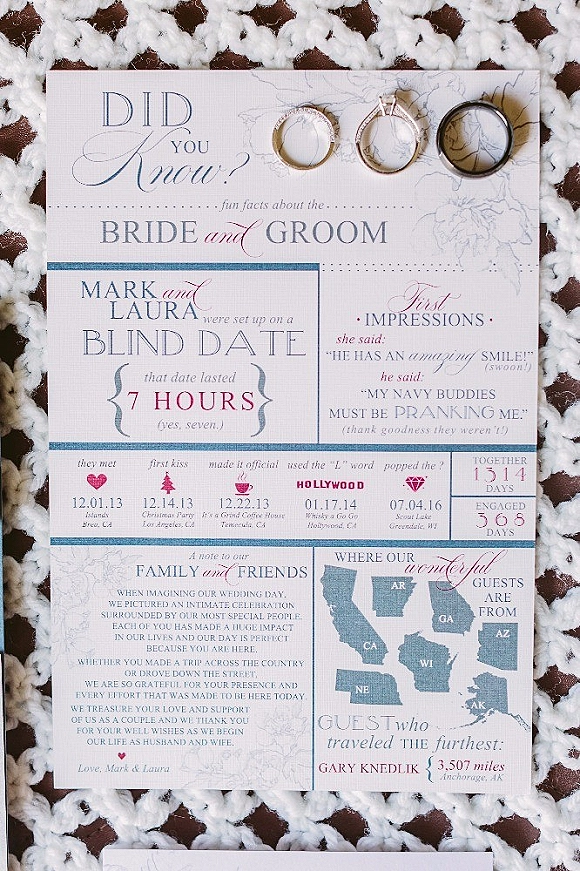 DID
YOU
Know?
fun facts about the
BRIDE and GROOM
MARK and
LAURA were set up on a
BLIND DATE
that date lasted
7 HOURS
(yes, seven.)
First
· IMPRESSIONS ·
she said:
"HE HAS AN amazing SMILE!"
(swoon!)
he said:
"MY NAVY BUDDIES
MUST BE PRANKING ME."
(thank goodness they weren't!)
they met
12.01.13
Islands
Brea, CA
first kiss
12.14.13
Christmas Party
Los Angeles, CA
made it official
12.22.13
It's a Grind Coffee House
Temecula, CA
used the "L" word
HOLLYWOOD
01.17.14
Whisky a Go Go
Hollywood, CA
popped the ?
07.04.16
Scout Lake
Greendale, WI
TOGETHER
1314
DAYS
ENGAGED
368
DAYS
A note to our
FAMILY and FRIENDS
WHEN IMAGINING OUR WEDDING DAY,
WE PICTURED AN INTIMATE CELEBRATION
SURROUNDED BY OUR MOST SPECIAL PEOPLE.
EACH OF YOU HAS MADE A HUGE IMPACT
IN OUR LIVES AND OUR DAY IS PERFECT
BECAUSE YOU ARE HERE.
WHETHER YOU MADE A TRIP ACROSS THE COUNTRY
OR DROVE DOWN THE STREET,
WE ARE SO GRATEFUL FOR YOUR PRESENCE AND
EVERY EFFORT THAT WAS MADE TO BE HERE TODAY.
WE TREASURE YOUR LOVE AND SUPPORT
OF US AS A COUPLE AND WE THANK YOU
FOR YOUR WELL WISHES AS WE BEGIN
OUR LIFE AS HUSBAND AND WIFE.
Love, Mark & Laura
WHERE OUR
wonderful
GUESTS
ARE
FROM
AR
GA
CA
AZ
WI
NE
AK
GUEST who
traveled THE furthest:
GARY KNEDLIK { 3,507 miles
Anchorage, AK